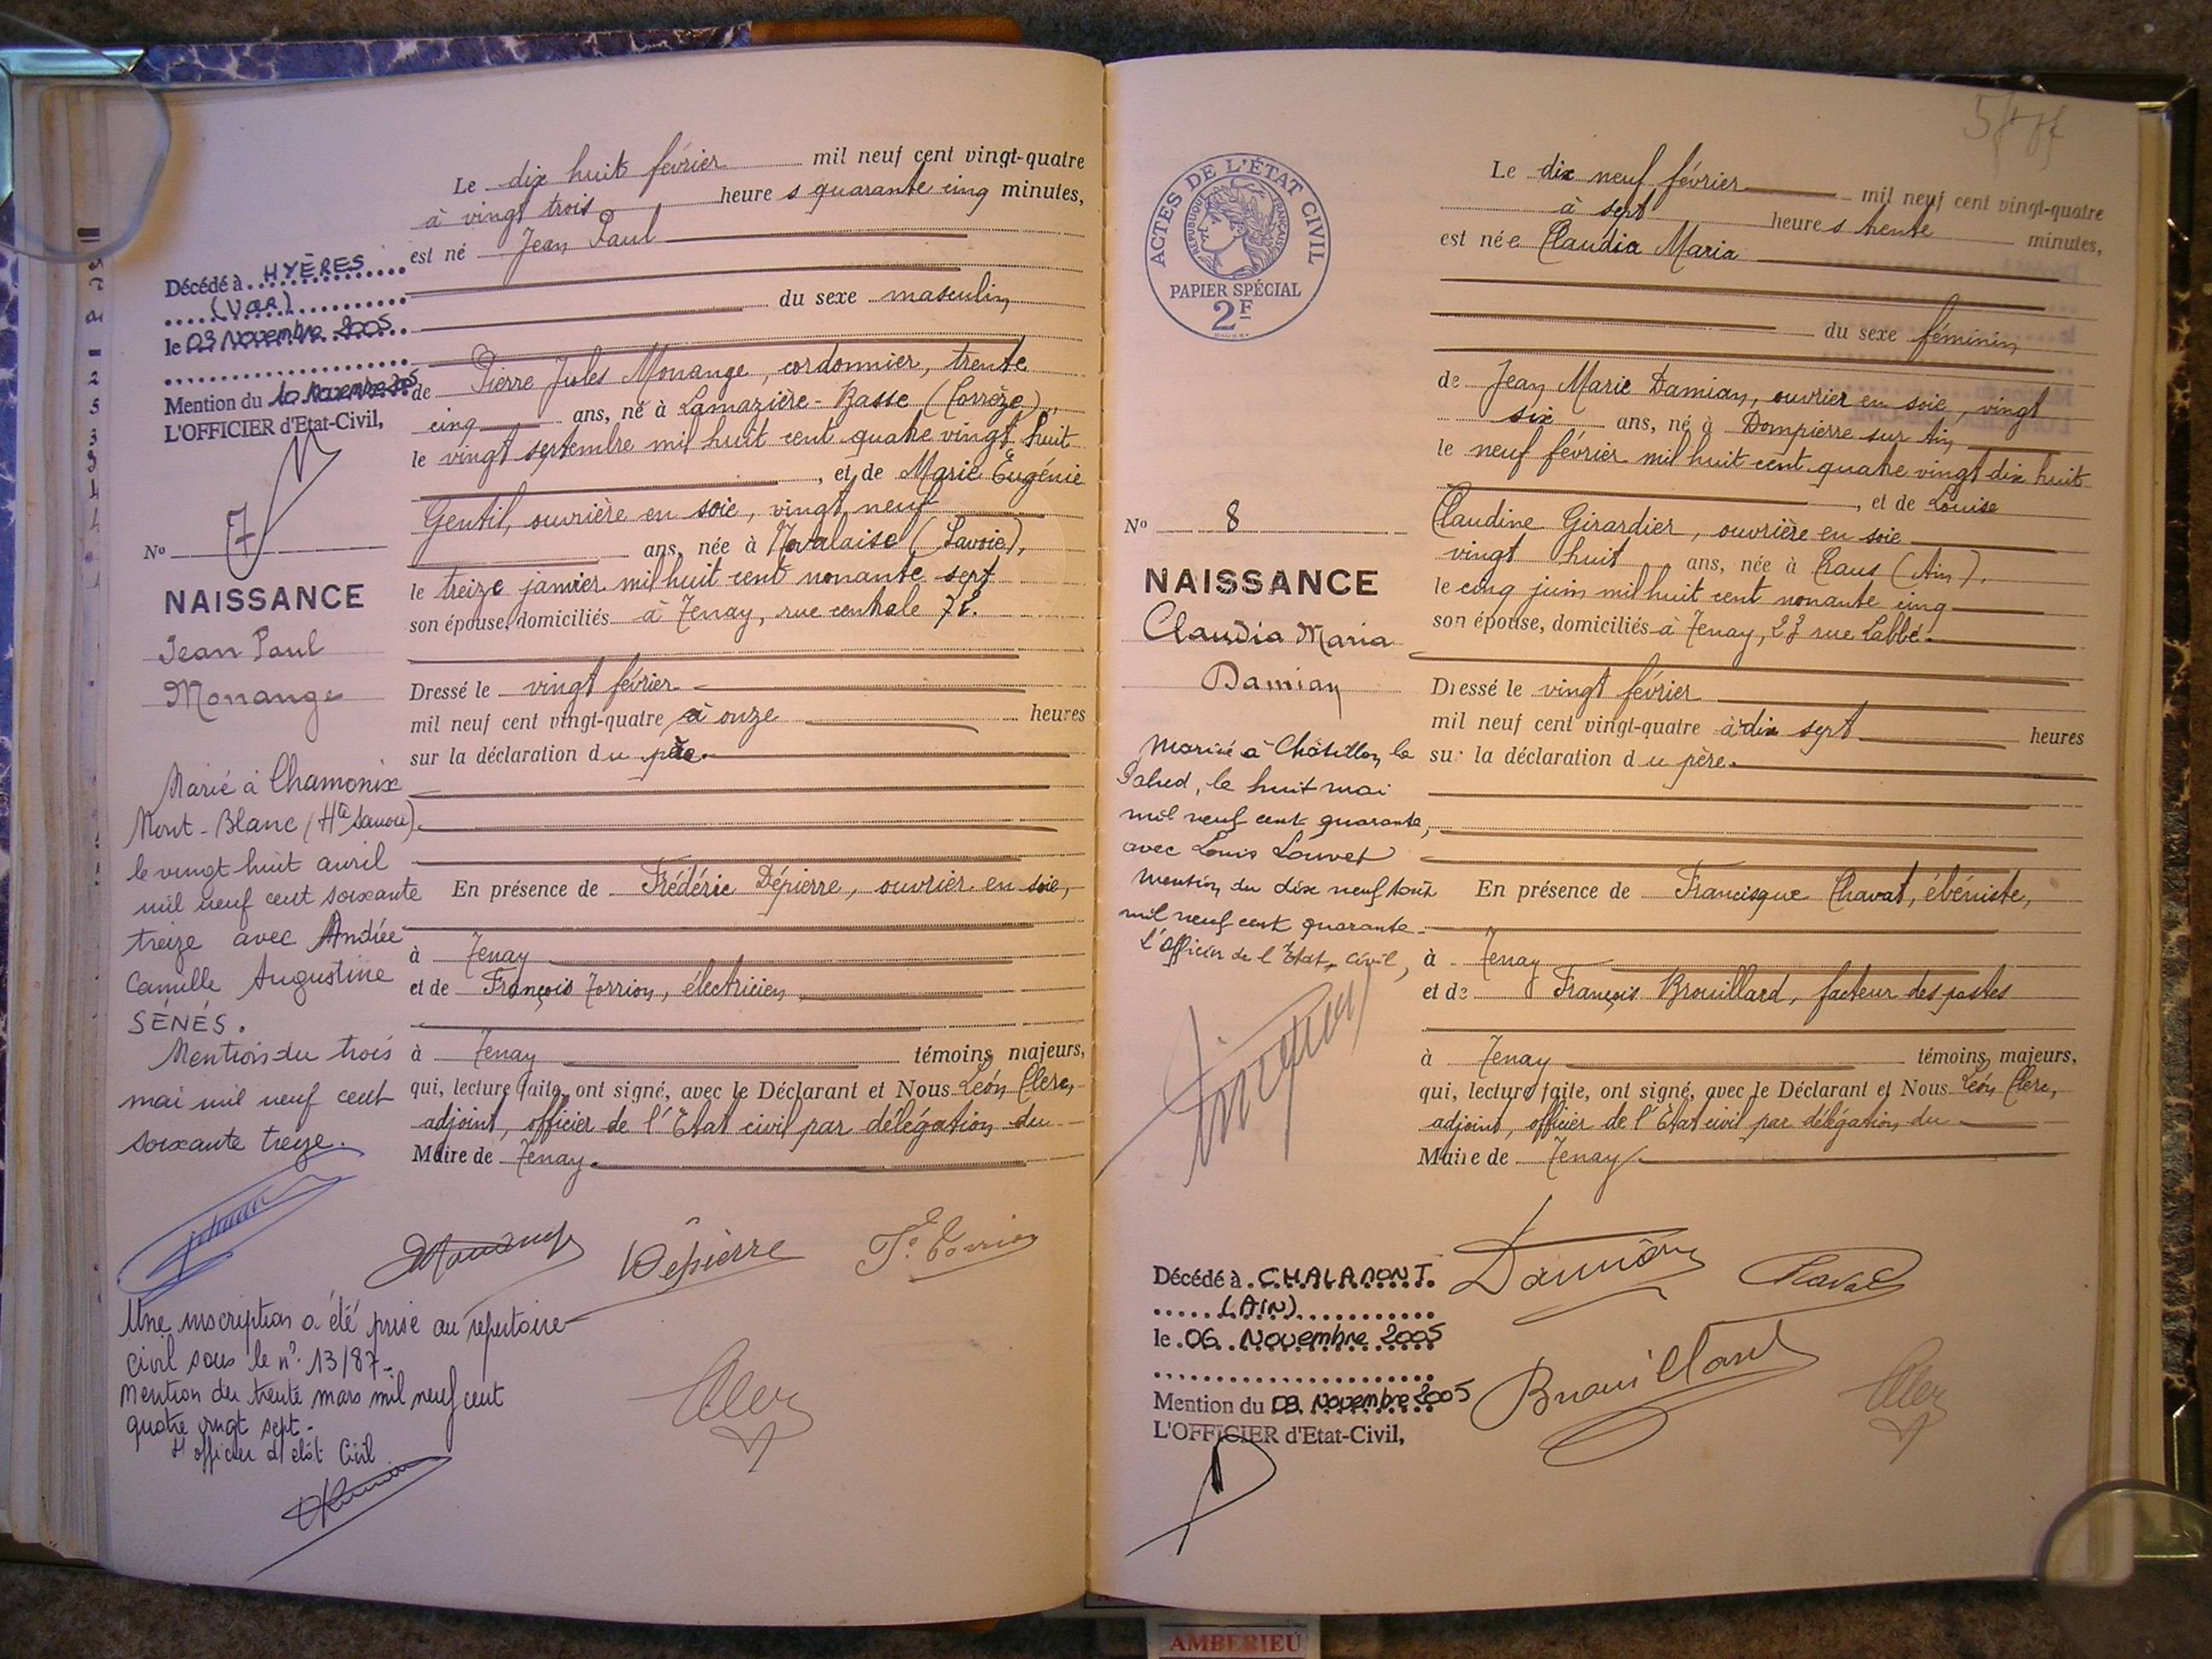 Le dix huit février mil neuf cent vingt-quatre
à vingt trois heures quarante cinq minutes,
est né Jean Paul
du sexe masculin
de Pierre Jules Monange, cordonnier, trente
cinq ans, né à Lamazière-Basse (Corrèze),
le vingt septembre mil huit cent quatre vingt huit
, et de Marie Eugénie
Gentil, ouvrière en soie, vingt neuf
ans, née à Novalaise (Savoie),
le treize janvier mil huit cent nonante sept
son épouse, domiciliés à Tenay, rue centrale
Dressé le vingt février
mil neuf cent vingt-quatre à onze heures
sur la déclaration du père.
En présence de Frédéric Dépierre, ouvrier en soie,
à Tenay
et de François Torrion, électricien,
à Tenay témoins majeurs,
qui, lecture faite, ont signé, avec le Déclarant et Nous Léon Clerc,
adjoint, officier de l'État civil par délégation du
Maire de Tenay.
Décédé à HYÈRES
(VAR)
le 03 Novembre 2005
Mention du 10 Novembre 2005
L'OFFICIER d'Etat-Civil,
No 7
NAISSANCE
Jean Paul
Monange
Marié à Chamonix
Mont-Blanc (Hte Savoie)
le vingt huit avril
mil neuf cent soixante
treize avec Andrée
Camille Augustine
SÉNÉS.
Mention du trois
mai mil neuf cent
soixante treize.
Dépierre
Une inscription a été prise au répertoire
civil sous le n° 13/87.
Mention du trente mars mil neuf cent
quatre vingt sept.
L'officier d'état Civil
ACTES DE L'ÉTAT CIVIL
RÉPUBLIQUE FRANÇAISE
PAPIER SPÉCIAL
2F
Le dix neuf février mil neuf cent vingt-quatre
à sept heures trente minutes,
est née Claudia Maria
du sexe féminin
de Jean Marie Damian, ouvrier en soie, vingt
six ans, né à Dompierre sur Ain,
le neuf février mil huit cent quatre vingt dix huit
, et de Louise
Claudine Girardier, ouvrière en soie
vingt huit ans, née à (Ain),
le cinq juin mil huit cent nonante cinq
son épouse, domiciliés à Tenay, rue Labbé.
Dressé le vingt février
mil neuf cent vingt-quatre à dix sept heures
sur la déclaration du père.
En présence de Francisque Chavat, ébéniste,
à Tenay
et de François Brouillard, facteur des postes
à Tenay témoins majeurs,
qui, lecture faite, ont signé, avec le Déclarant et Nous Léon Clerc,
adjoint, officier de l'État civil par délégation du
Maire de Tenay.
No 8
NAISSANCE
Claudia Maria
Damian
Mariée à Châtillon la
Palud, le huit mai
mil neuf cent quarante,
avec Louis Louvet
Mention du dix neuf
mil neuf cent quarante.
L'Officier de l'État civil,
Damian Chavat
Brouillard
Décédé à CHALAMONT
(AIN)
le 06 Novembre 2005
Mention du 09 Novembre 2005
L'OFFICIER d'Etat-Civil,
AMBERIEU